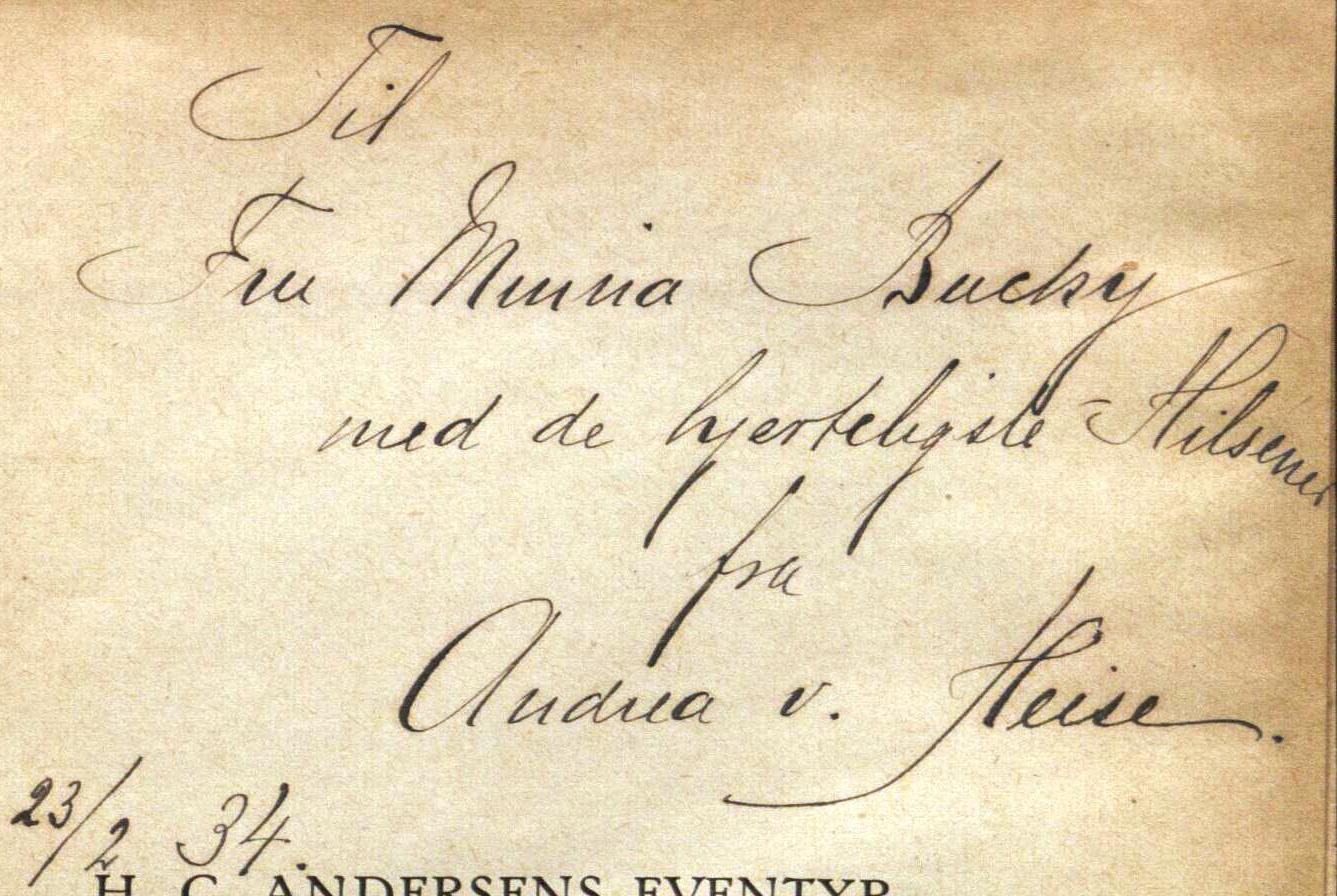 Til
Fru Minna Bucky
med de hjerteligste Hilsener
fra
Andrea v. Heise.
23/2 34.
H. C. ANDERSENS EVENTYR